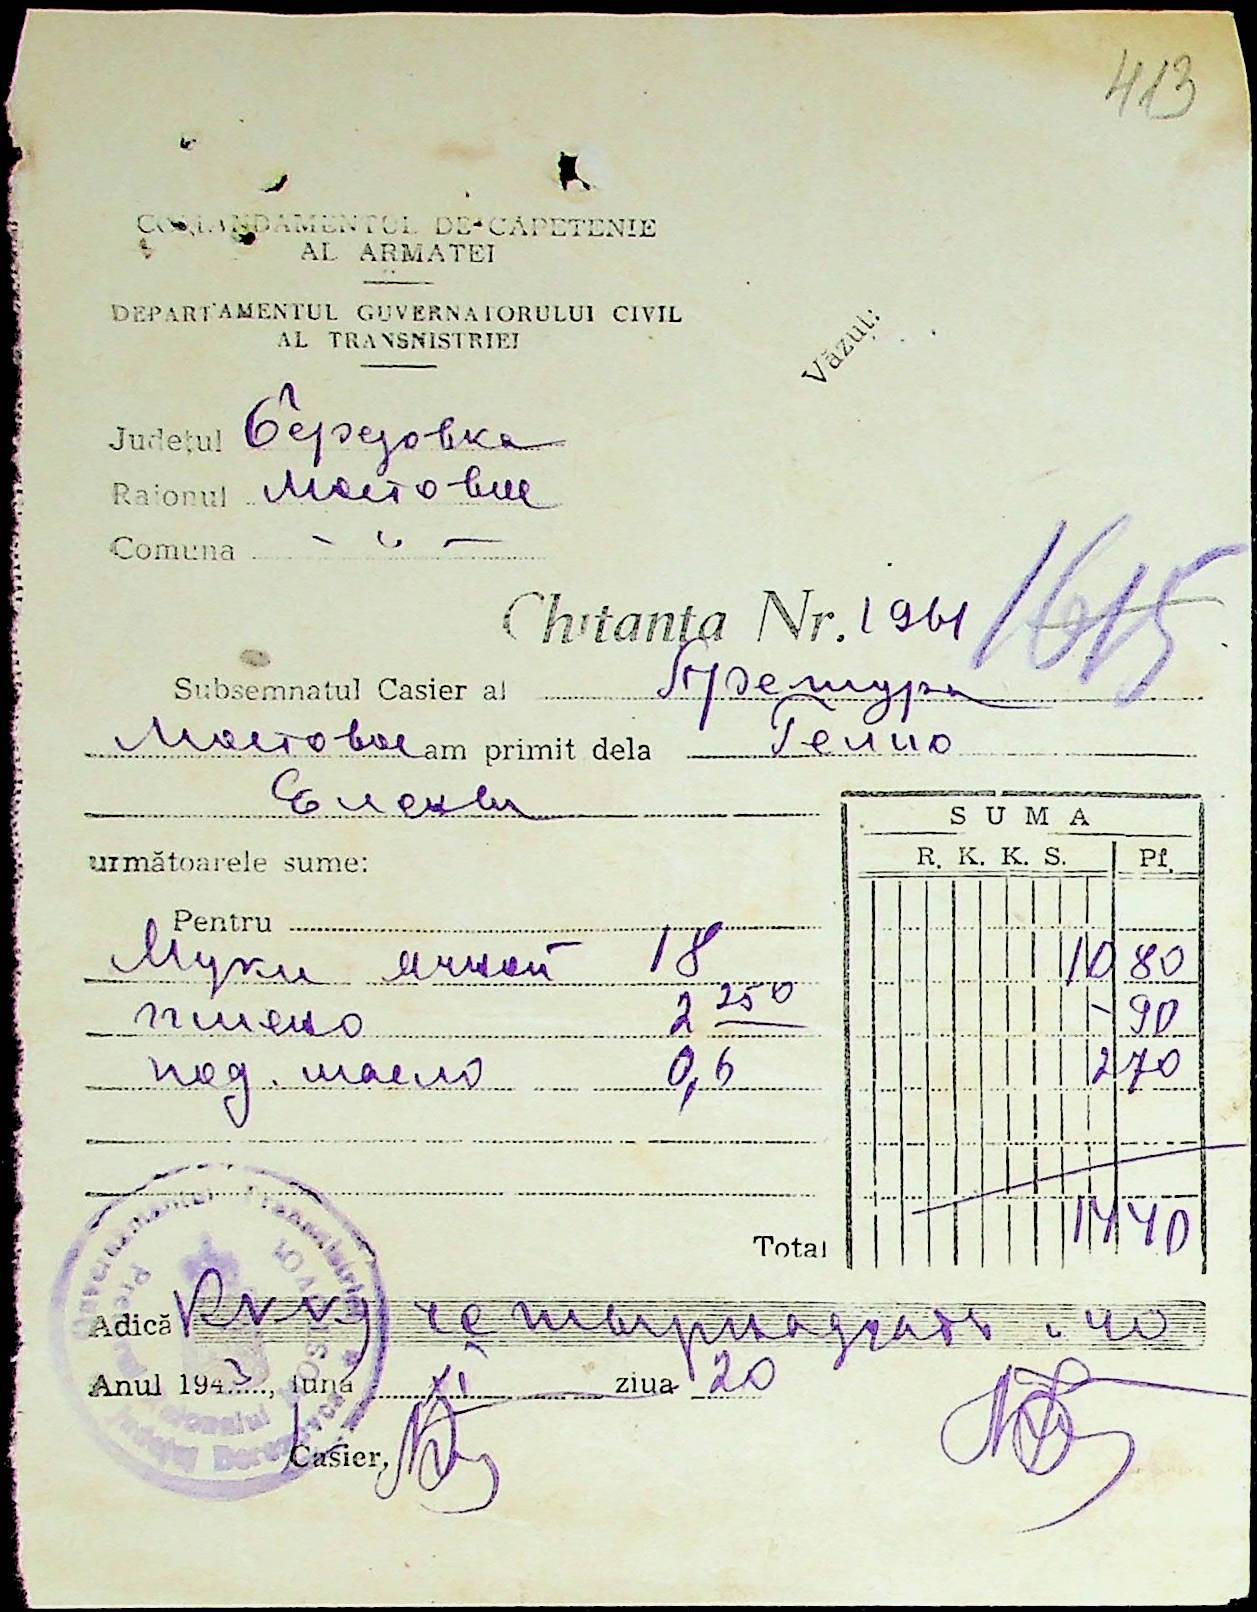 413
COMANDAMENTUL DE CAPETENIE
AL ARMATEI
DEPARTAMENTUL GUVERNATORULUI CIVIL
AL TRANSNISTRIEI
Văzut:
Județul Березовка
Raionul Мостовое
Comuna - " -
Chitanța Nr. 1961 1615
Subsemnatul Casier al Претура
Мостовое am primit dela
Елены
SUMA
următoarele sume:
R. K. K. S. Pf.
Pentru
Муки ячной 18 10 80
пшено 2 250 - 90
под. масло 0,6 2 70
Total 14 40
Adică четырнадцать и 40
Anul 1943, luna XI ziua 20
Casier,
Guvernamantul Transnistriei